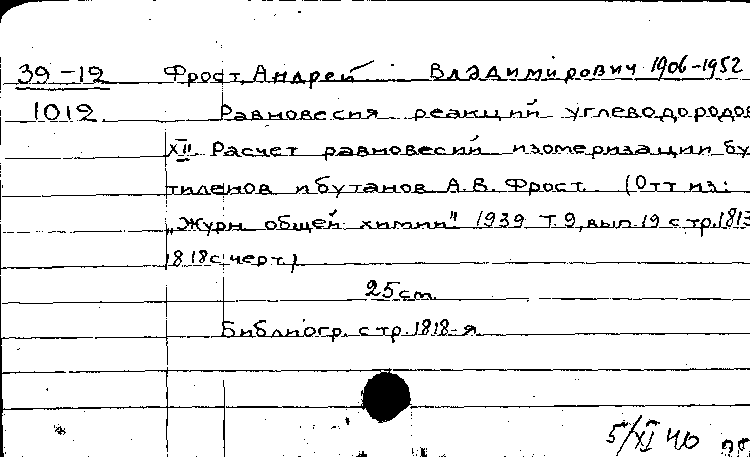 39-12 Фрост, Андрей Владимирович 1906-1952
1012 Равновесия реакций углеводородов
XII. Расчет равновесий изомеризации бу
тиленов и бутанов А.В. Фрост. (Отт из:
„Журн общей химии" 1939 Т.9, вып.19 стр.1813
1818 с черт.)
25 cm.
Библиогр. стр. 1818-я
5/XI 40